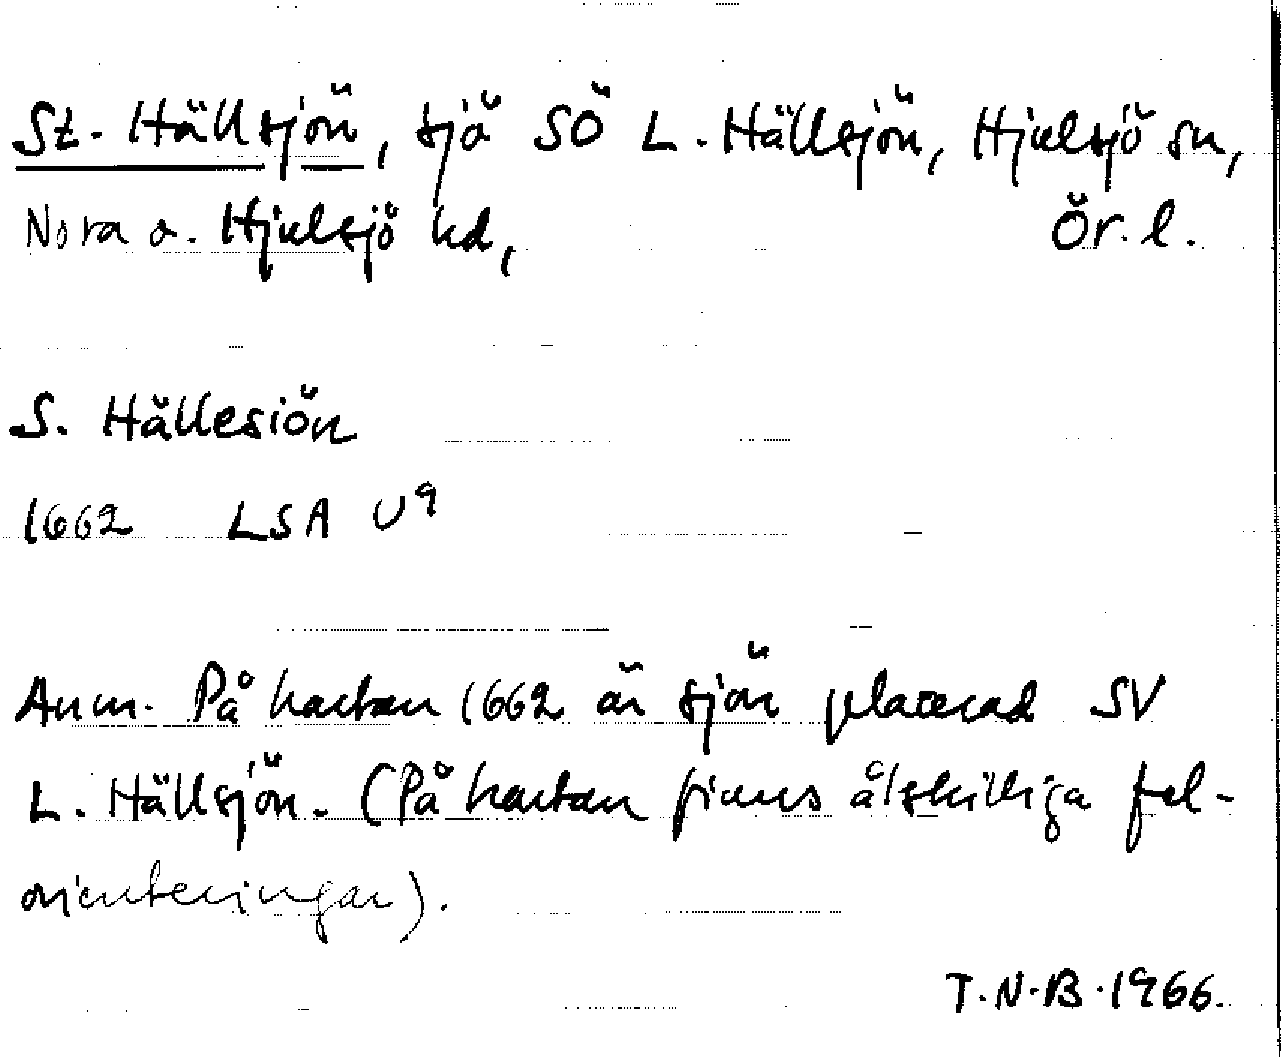 St. Hällsjön, sjö SÖ L. Hällsjön, Hjulsjö sn,
Nora o. Hjulsjö hd, Ör. l.
S. Hällesiön
1662 LSA U9
Anm. På kartan 1662 är sjön placerad SV
L. Hällsjön. (På kartan finns åtskilliga fel-
orienteringar).
T.N.B. 1966.